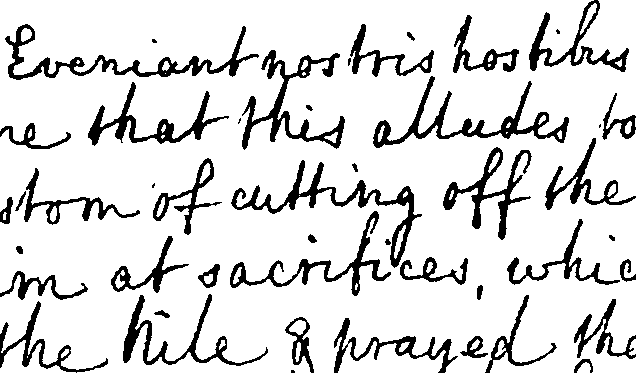 Eveniant nostris hostibus
ne that this alludes to
stom of cutting off the
im at sacrifices, whic
the Nile & prayed the